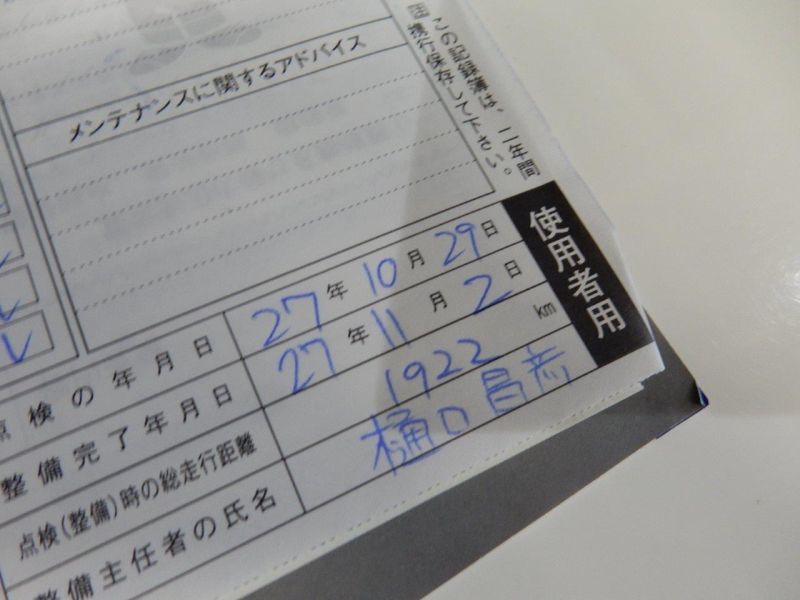 メンテナンスに関するアドバイス
この記録簿は、二年間
携行保存して下さい。
使用者用
点検の年月日 27年 10月 29日
整備完了年月日 27年 11月 2日
点検(整備)時の総走行距離 1922 km
整備主任者の氏名 樋口 昌